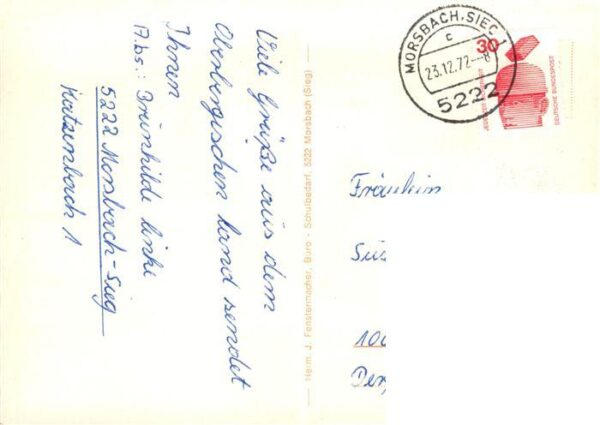 Viele Grüße aus dem
Oberbergischen Land sendet
Ihnen
Abs.: Brunhilde Linke
5222 Morsbach-Sieg
Katzenbach 1
Heinr. J. Fenstermacher, Büro - Schulbedarf, 5222 Morsbach (Sieg)
MORSBACH, SIEG 1
c
23.12.72
5222
30
DEUTSCHE BUNDESPOST
Fräulein